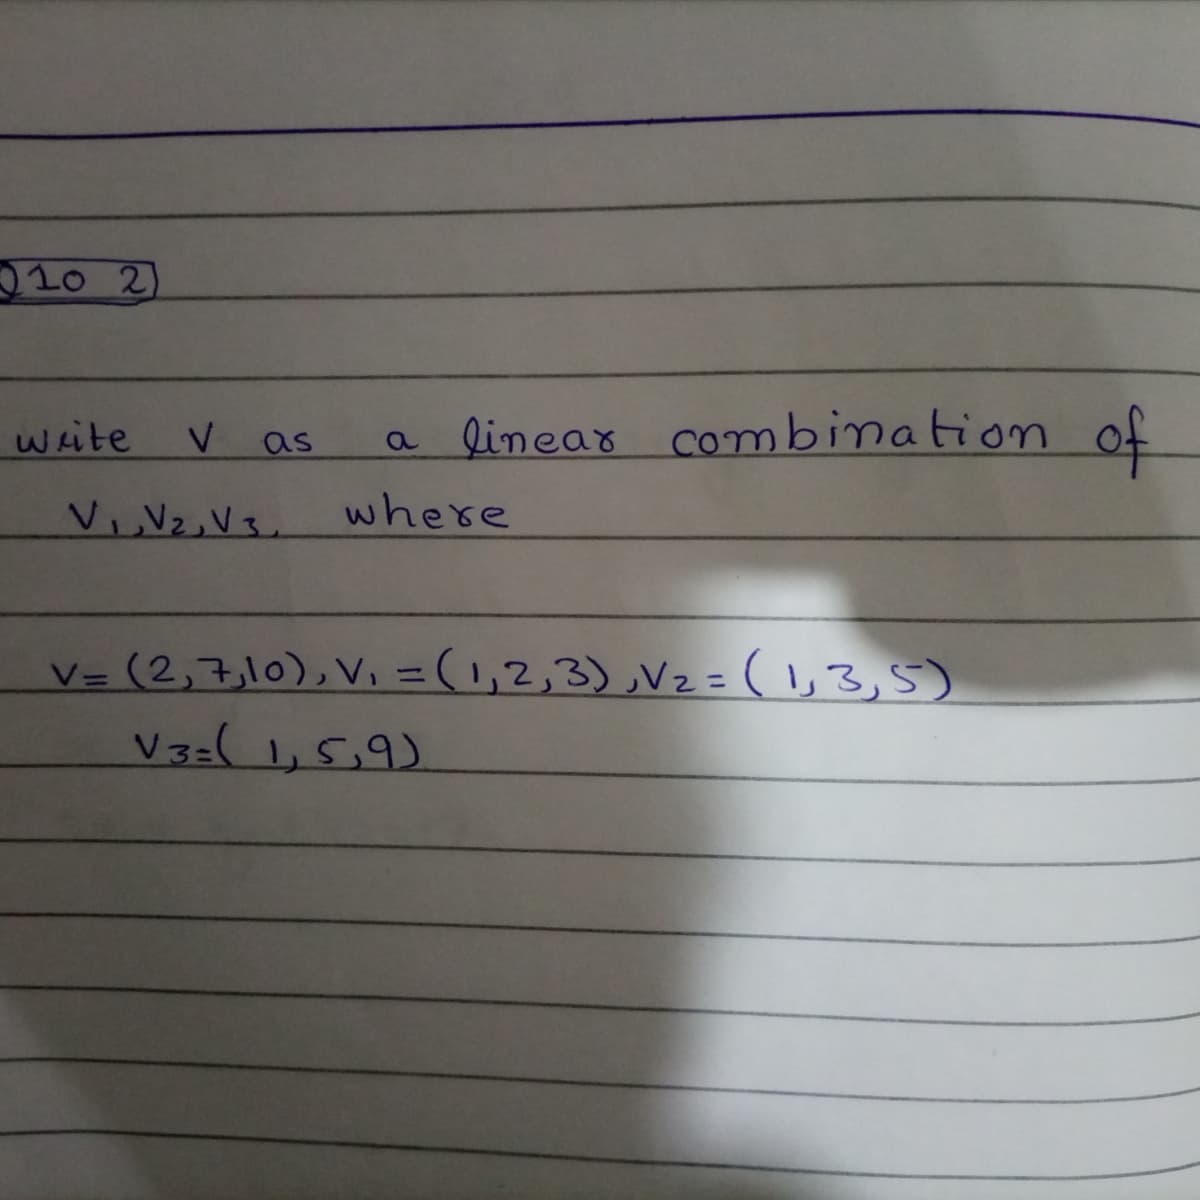 Q10 2)
write v as a linear combination of
V1, V2, V3, where
V= (2,7,10), V1 = (1,2,3), V2 = (1,3,5)
V3=( 1, 5,9)